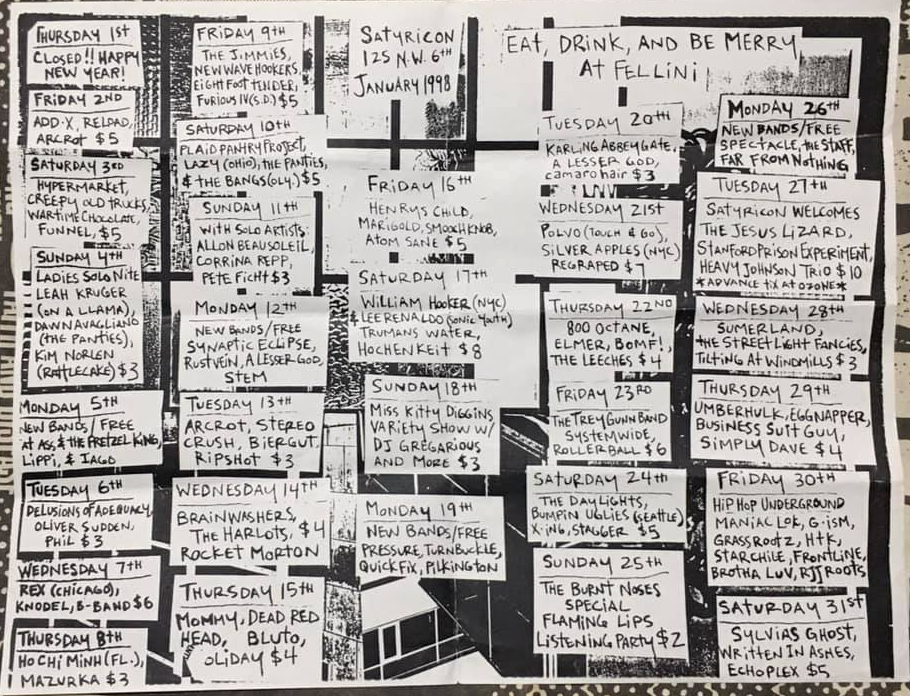 THURSDAY 1ST
CLOSED!! HAPPY
NEW YEAR!
FRIDAY 2ND
ADD-X, RELOAD,
ARCROT $5
SATURDAY 3RD
HYPERMARKET,
CREEPY OLD TRUCKS,
WARTIME CHOCOLATE,
FUNNEL, $5
SUNDAY 4TH
LADIES SOLO NITE
LEAH KRUGER
(ON A LLAMA),
DAWN AVAGLIANO
(THE PANTIES),
KIM NORLEN
(RATTLECAKE) $3
MONDAY 5TH
NEW BANDS / FREE
FAT ASS, & THE PRETZEL KING,
LIPPI, & IAGO
TUESDAY 6TH
DELUSIONS OF ADEQUACY,
OLIVER SUDDEN,
PHIL $3
WEDNESDAY 7TH
REX (CHICAGO),
KNODEL, B-BAND $6
THURSDAY 8TH
HO CHI MINH (FL.),
MAZURKA $3
FRIDAY 9TH
THE JIMMIES,
NEW WAVE HOOKERS,
EIGHT FOOT TENDER,
FURIOUS IV (S.D.) $5
SATURDAY 10TH
PLAID PANTRY PROJECT,
LAZY (OHIO), THE PANTIES,
& THE BANGS (OLY.) $5
SUNDAY 11TH
WITH SOLO ARTISTS:
ALLON BEAUSOLEIL,
CORRINA REPP,
PETE FICHT $3
MONDAY 12TH
NEW BANDS / FREE
SYNAPTIC ECLIPSE,
RUSTVEIN, A LESSER GOD,
STEM
TUESDAY 13TH
ARCROT, STEREO
CRUSH, BIERGUT,
RIPSHOT $3
WEDNESDAY 14TH
BRAINWASHERS,
THE HARLOTS, $4
ROCKET MORTON
THURSDAY 15TH
MOMMY, DEAD RED
HEAD, BLUTO,
OLIDAY $4
SATYRICON
125 N.W. 6TH
JANUARY 1998
FRIDAY 16TH
HENRYS CHILD,
MARIGOLD, SMOOCHKNOB,
ATOM SANE $5
SATURDAY 17TH
WILLIAM HOOKER (NYC)
& LEE RENALDO (SONIC YOUTH)
TRUMANS WATER,
HOCHENKEIT $8
SUNDAY 18TH
MISS KITTY DIGGINS
VARIETY SHOW W/
DJ GREGARIOUS
AND MORE $3
MONDAY 19TH
NEW BANDS/FREE
PRESSURE, TURNBUCKLE,
QUICKFIX, PILKINGTON
EAT, DRINK, AND BE MERRY
AT FELLINI
TUESDAY 20TH
KARLING ABBEYGATE,
A LESSER GOD,
camaro hair $3
WEDNESDAY 21ST
POLVO (TOUCH & GO),
SILVER APPLES (NYC)
REGRAPED $7
THURSDAY 22ND
800 OCTANE,
ELMER, BOMF!,
THE LEECHES $4
FRIDAY 23RD
THE TREY GUNN BAND
SYSTEMWIDE,
ROLLERBALL $6
SATURDAY 24TH
THE DAYLIGHTS,
BUMPIN UGLIES (SEATTLE)
X-ING, STAGGER $5
SUNDAY 25TH
THE BURNT NOSES
SPECIAL
FLAMING LIPS
LISTENING PARTY $2
MONDAY 26TH
NEW BANDS/FREE
SPECTACLE, THE STAFF,
FAR FROM NOTHING
TUESDAY 27TH
SATYRICON WELCOMES
THE JESUS LIZARD,
STANFORD PRISON EXPERIMENT,
HEAVY JOHNSON TRIO $10
*ADVANCE TIX AT OZONE*
WEDNESDAY 28TH
SUMERLAND,
THE STREET LIGHT FANCIES,
TILTING AT WINDMILLS $3
THURSDAY 29TH
UMBERHULK, EGGNAPPER,
BUSINESS SUIT GUY,
SIMPLY DAVE $4
FRIDAY 30TH
HIP HOP UNDERGROUND
MANIAC LOK, G-ISM,
GRASSROOTZ, HTK,
STARCHILE, FRONTLINE,
BROTHA LUV, RJJ ROOTS
SATURDAY 31ST
SYLVIAS GHOST,
WRITTEN IN ASHES,
ECHOPLEX $5